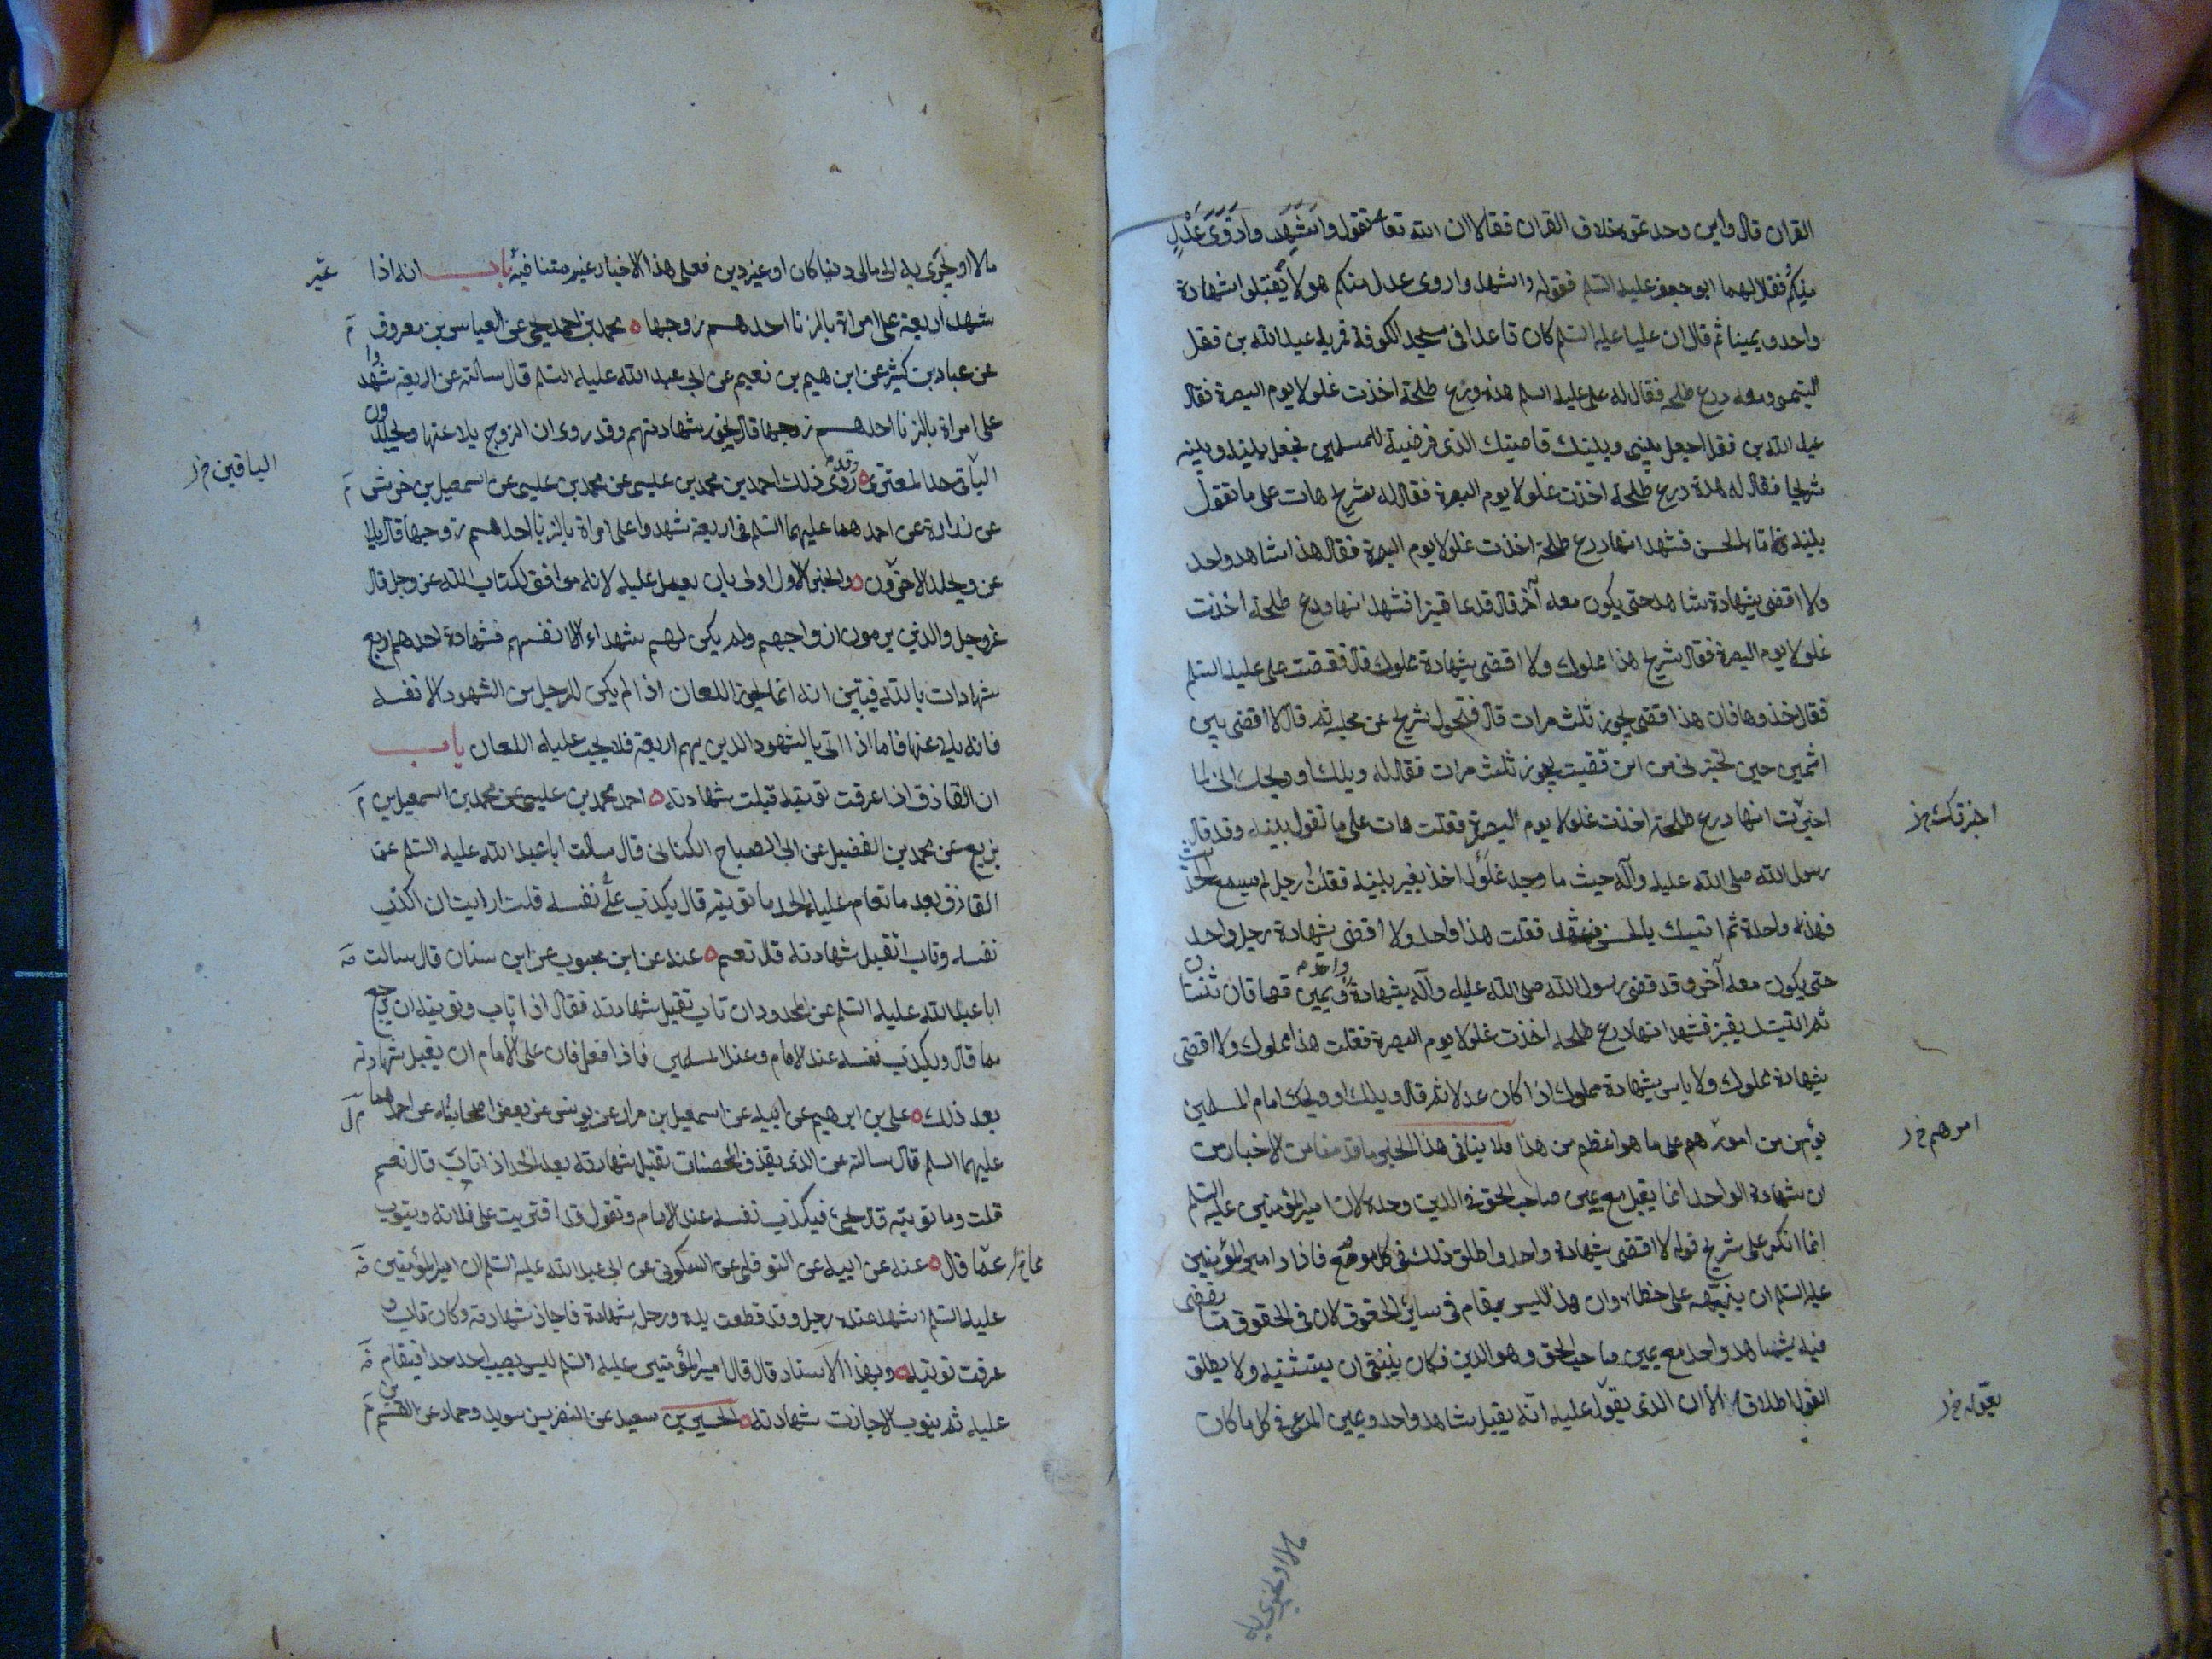 القران قال واين وجدتموه خلاف القران فقالا ان الله تعا يقول واشهدوا ذوى عدل
منكم فقال لهما ابو جعفر عليه السلم فقوله واشهدوا ذوى عدل منكم هو لا تقبلوا شهادة
واحد ويمينا ثم قال ان عليا عليه السلم كان قاعدا فى مسجد الكوفة فمر به عبد الله بن قفل
التيمى ومعه درع طلحه فقال له على عليه السلم هذه درع طلحة اخذت غلولا يوم البصرة فقال
عبد الله بن قفل اجعل بينى وبينك قاضيك الذى رضيته للمسلمين فجعل بينه وبينه
شريحا فقال له هذة درع طلحة اخذت غلولا يوم البصرة فقال له شريح هات على ما تقول
بينة فاتاه الحسن فشهد انها درع طلحة اخذت غلولا يوم البصرة فقال هذا شاهد واحد
ولا اقضى بشهادة شاهد حتى يكون معه آخر قال فدعا قنبرا فشهد انها درع طلحة اخذت
غلولا يوم البصرة فقال شريح هذا مملوك ولا اقضى بشهادة مملوك قال فغضب على عليه السلم
فقال خذوها فان هذا قضى بجور ثلث مرات قال فتحول شريح عن مجلسه ثم قال لا اقضى بين
اثنين حتى تخبرنى من اين قضيت بجور ثلث مرات فقال له ويلك او ويحك انى لما
اخبرتك انها درع طلحة اخذت غلولا يوم البصرة فقلت هات على ما تقول بينه وقد قال
رسول الله صلى الله عليه وآله حيث ما وجد غلول اخذ بغير بينه فقلت رجل لم يسمع الحديث
فهذه واحدة ثم اتيتك بالحسن فشهد فقلت هذا واحد ولا اقضى بشهادة رجل واحد
حتى يكون معه آخر وقد قضى رسول الله صلى الله عليه وآله بشهادة واحد ويمين فهاتان ثنتان
ثم اتيتك بقنبر فشهد انها درع طلحه اخذت غلولا يوم البصرة فقلت هذا مملوك ولا اقضى
بشهادة مملوك ولا باس بشهادة مملوك اذا كان عدلا ثم قال ويلك او ويحك امام المسلمين
يؤمن من امورهم على ما هو اعظم من هذا فلا ينافى هذا الخبر ما قدمناه من الاخبار من
ان شهادة الواحد انما يقبل مع يمين صاحب الحق فى الدين وحده لان امير المؤمنين عليه السلم
انما انكر على شريح قوله لا اقضى بشهادة واحد واطلق ذلك فى كل موضع فاراد امير المؤمنين
عليه السلم ان ينبهه على خطائه وان هذا ليس بمقام فى سائر الحقوق لان فى الحقوق ما يقضى
فيه بشاهد واحد مع يمين صاحب الحق وهو الدين فكان ينبغى ان يستثنيه ولا يطلق
القول اطلاقا الا ان الذى يقول عليه انه يقبل شاهد واحد ويمين المدعى فى كل ما كان
اخبرتك خ
امرهم خ ر
مالا او يجرى به
مالا او يجرى به الى مالى دينا كان او غير دين فعلى هذا الاخبار غير متنافيه باب انه اذا
شهد اربعة على امراة بالزنا احدهم زوجها محمد بن احمد بن يحيى عن العباس بن معروف
عن عباد بن كثير عن ابرهيم بن نعيم عن ابى عبد الله عليه السلم قال سالته عن اربعة شهدوا
على امراة بالزنا احدهم زوجها قال يجوز شهادتهم وقد روى ان الزوج يلاعنها ويجلدون
الباقى حد المفترى روى ذلك احمد بن محمد بن عيسى عن محمد بن عيسى عن اسمعيل بن خراش
عن زرارة عن احدهما عليهما السلم فى اربعة شهدوا على امراة بالزنا احدهم زوجها قال يلا
عن ويجلد الاخرون والخبر الاول اولى بان يعمل عليه لانه موافق لكتاب الله عز وجل قال
عز وجل والذين يرمون ازواجهم ولم يكن لهم شهداء الا انفسهم فشهادة احدهم اربع
شهادات بالله فبين انه انما يجوز اللعان اذا لم يكن للرجل من الشهود الا نفسه
فانه يلاعنها فاما اذا اتى بالشهود الذين بهم اربعة فلا يجب عليه اللعان باب
ان القاذف اذا عرفت توبته قبلت شهادته احمد محمد بن عيسى عن محمد بن اسمعيل بن
بزيع عن محمد بن الفضيل عن ابى الصباح الكنانى قال سالت ابا عبد الله عليه السلم عن
القاذف بعد ما تقام عليه الحد ما توبته قال يكذب على نفسه قلت ارايت ان اكذب
نفسه وتاب اتقبل شهادته قال نعم عنه عن ابن محبوب عن ابن سنان قال سالت
ابا عبد الله عليه السلم عن المحدود ان تاب تقبل شهادته فقال اذا تاب وتوبته ان يرجع
مما قال ويكذب نفسه عند الامام وعند المسلمين فاذا فعل فان على الامام ان يقبل شهادته
بعد ذلك على بن ابرهيم عن ابيه عن اسمعيل بن مرار عن يونس عن بعض اصحابنا عن احدهما
عليهما السلم قال سالته عن الذى يقذف المحصنات تقبل شهادته بعد الحد اذا تاب قال نعم
قلت وما توبته قال يجئ فيكذب نفسه عند الامام ويقول قد افتريت على فلانه ويتوب
عما قال عنه عن ابيه عن النوفلى عن السكونى عن ابى عبد الله عليه السلم ان امير المؤمنين
عليه السلم شهد عنده رجل وقد قطعت يده ورجله شهادة فاجاز شهادته وكان تاب و
عرفت توبته وبهذا الاسناد قال قال امير المؤمنين عليه السلم ليس يصيب احد حدا فيقام
عليه ثم يتوب الا جازت شهادته الحسين بن سعيد عن النضر بن سويد وحماد عن القسم
الباقين خ ر